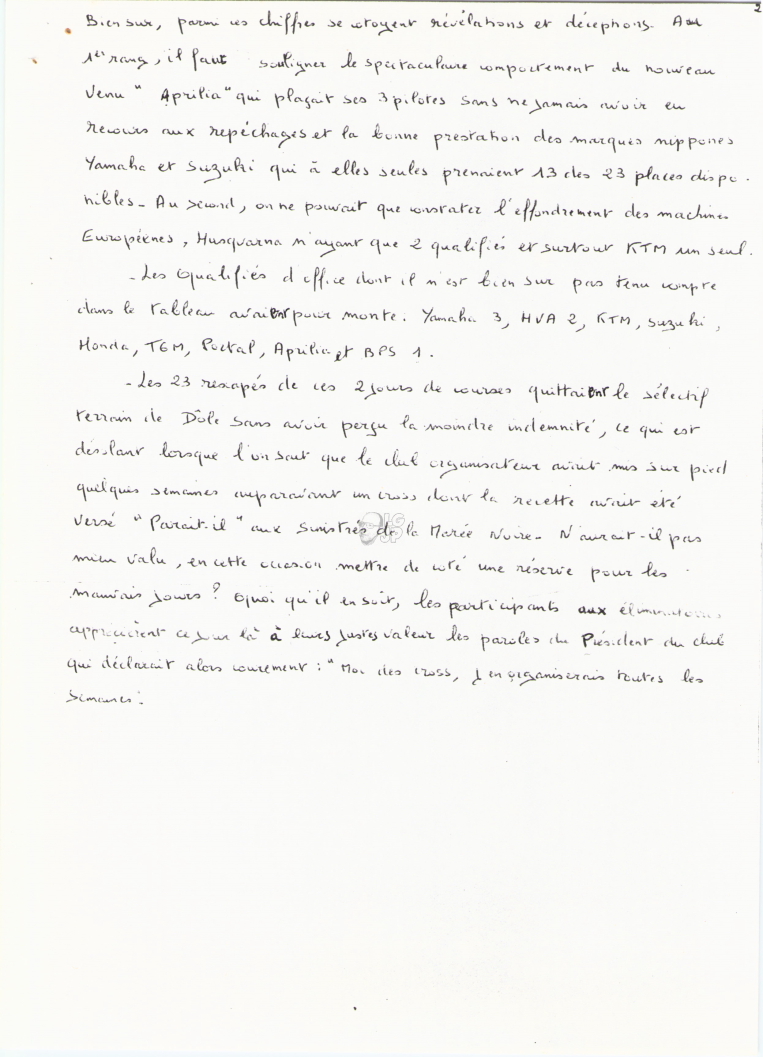 2
Bien sur, parmi ces chiffres se cotoyent révélations et déceptions. Au
1er rang, il faut souligner le spectaculaire comportement du nouveau
Venu " Aprilia" qui plaçait ses 3 pilotes sans ne jamais avoir eu
recours aux repéchages et la bonne prestation des marques nippones
Yamaha et Suzuki qui à elles seules prenaient 13 des 23 places dispo-
nibles- Au second, on ne pouvait que constater l'effondrement des machines
Européenes, Husqvarna n'ayant que 2 qualifiés et surtout KTM un seul.
- Les Qualifiés d'office dont il n'est bien sur pas tenu compte
dans le tableau avaient pour monte. Yamaha 3, HVA 2, KTM, Suzuki,
Honda, TGM, Portal, Aprilia et BPS 1.
- Les 23 rescapés de ces 2 jours de courses quittaient le sélectif
terrain de Dôle sans avoir perçu la moindre indemnité, ce qui est
désolant lorsque l'on sait que le club organisateur avait mis sur pied
quelques semaines auparavant un cross dont la recette avait été
versé "Parait-il" aux Sinistrés de la Marée Noire- N'aurait-il pas
mieux valu, en cette occasion mettre de coté une réserve pour les
mauvais jours? Quoi qu'il en soit, les participants aux éliminatoires
apprécièrent ce jour là à leurs justes valeur les paroles du Président du club
qui déclarait alors : "Moi des cross, j'en organiserais toutes les
semaines.